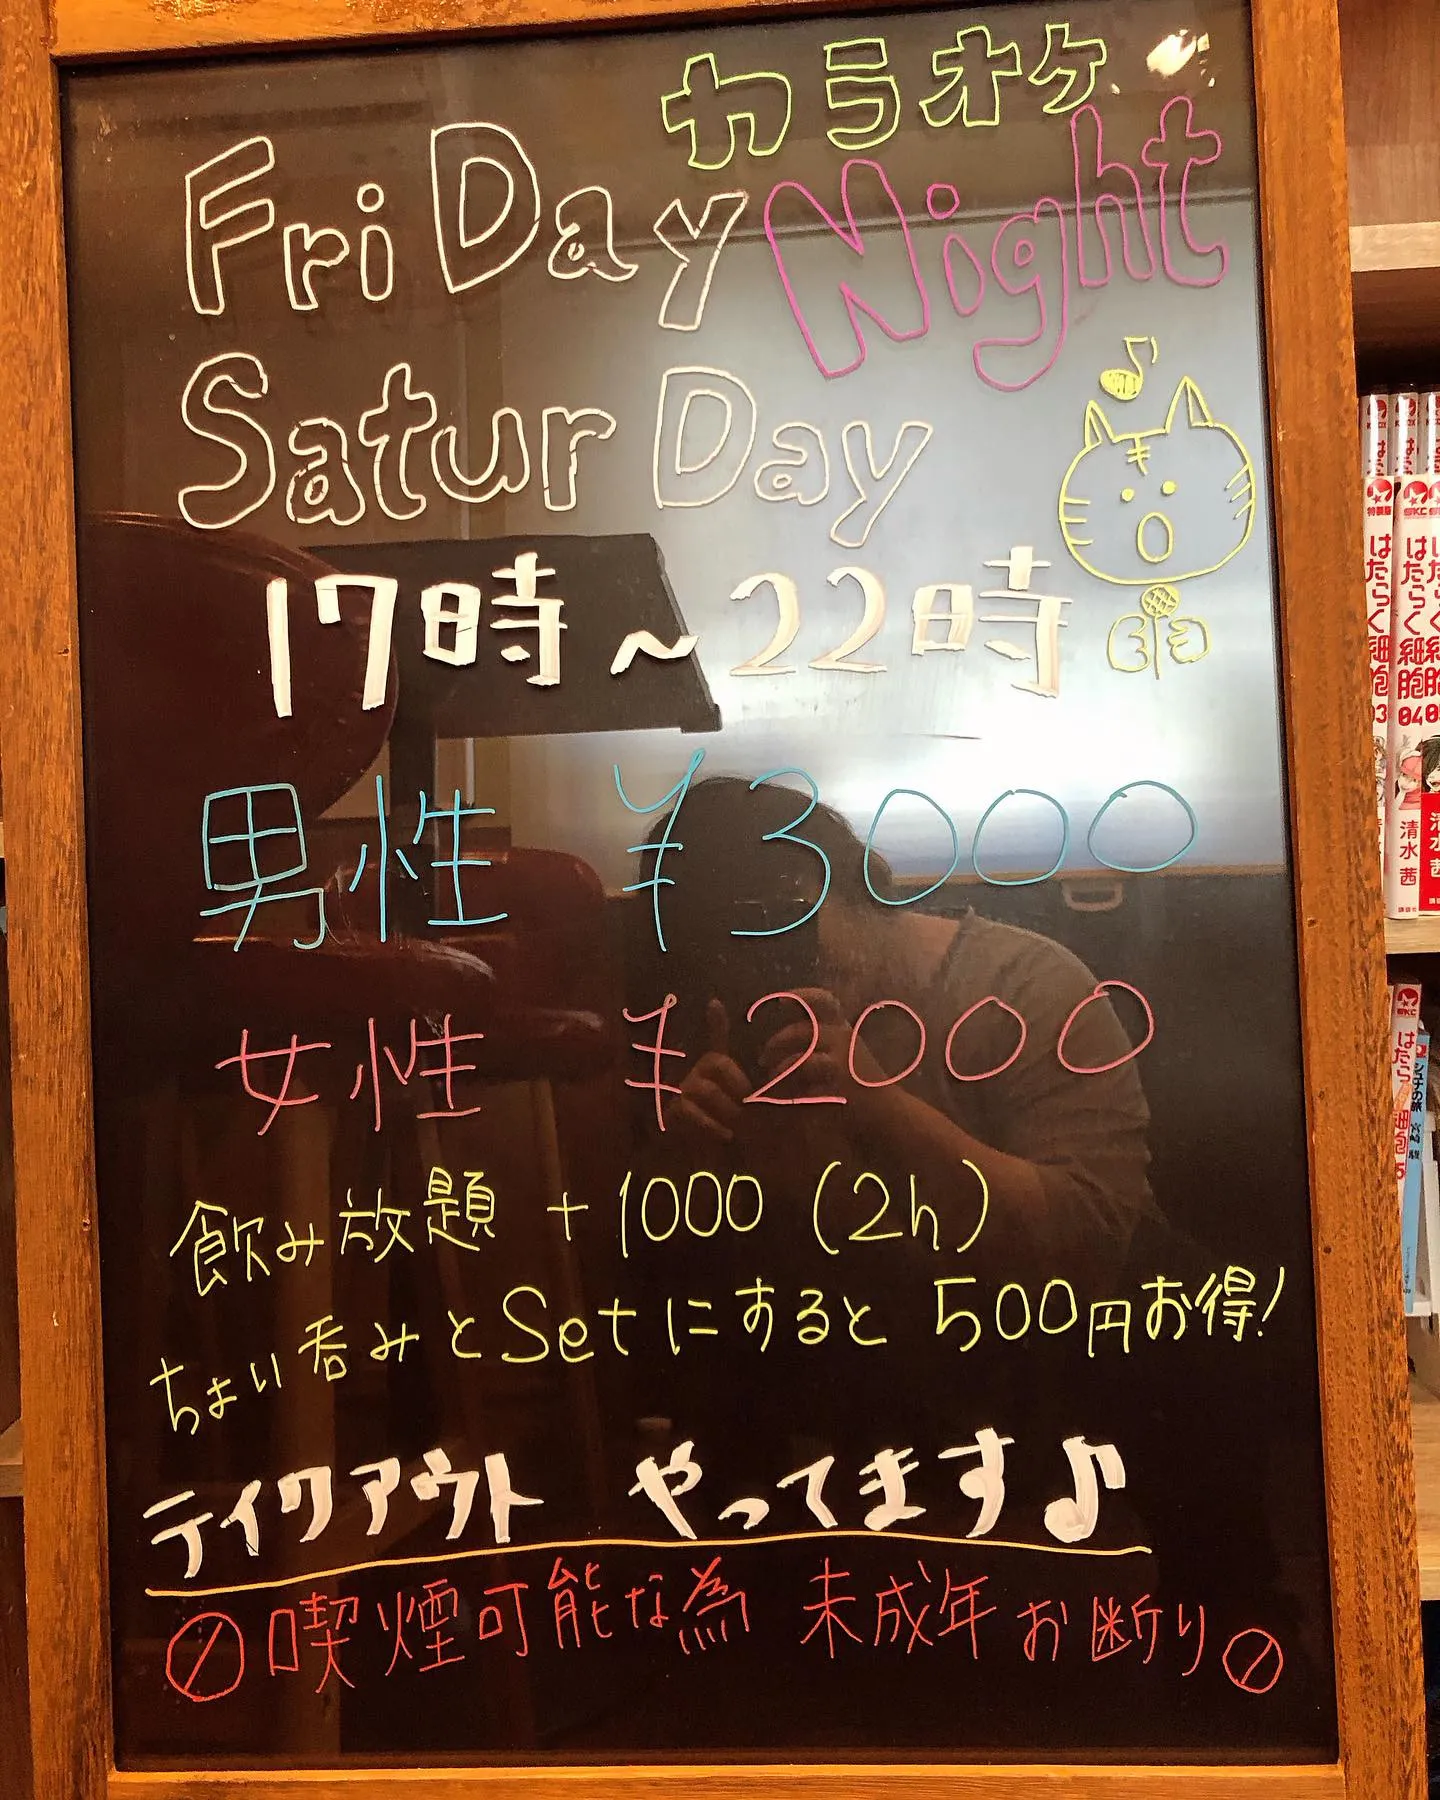 カラオケ
FriDay Night
SaturDay
17時～22時
男性 ¥3000
女性 ¥2000
飲み放題 +1000 (2h)
ちょい呑みとSetにすると 500円お得!
テイクアウト やってます♪
喫煙可能な為 未成年お断り
はたらく細胞 03
はたらく細胞 04
清水茜
はたらく細胞
シュナの旅